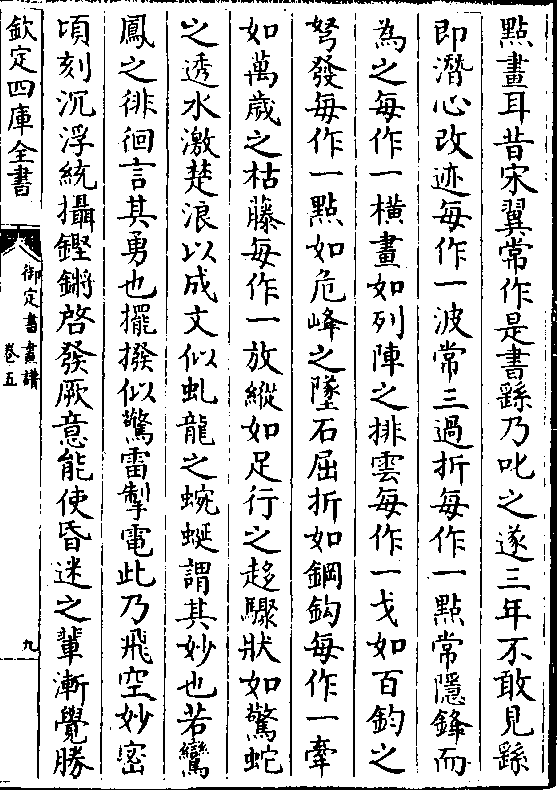 點畫耳昔宋翼常作是書繇乃叱之遂三年不敢見繇
即潛心改迹每作一波常三過折每作一點常隱鋒而
為之每作一橫畫如列陣之排雲每作一戈如百鈞之
弩發每作一點如危峰之墜石屈折如鋼鈎每作一牽
如萬歲之枯藤每作一放縱如足行之趍驟狀如驚蛇
之透水激楚浪以成文似虬龍之蜿蜒謂其妙也若鸞
鳳之徘徊言其勇也擺撥似驚雷掣電此乃飛空妙密
頃刻沉浮統攝鏗鏘啓發厥意能使昏迷之輩漸覺勝
欽定四庫全書
御定書畫譜
卷五
九